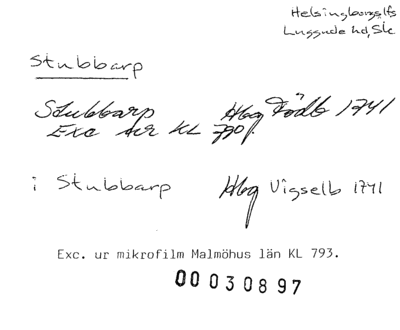 Helsingborgs lfs
Luggude hd, Sk
Stubbarp
Stubbarp Hbg Födb 1741
Exc ur KL 790.
i Stubbarp Hbg Vigselb 1741
Exc. ur mikrofilm Malmöhus län KL 793.
00030897